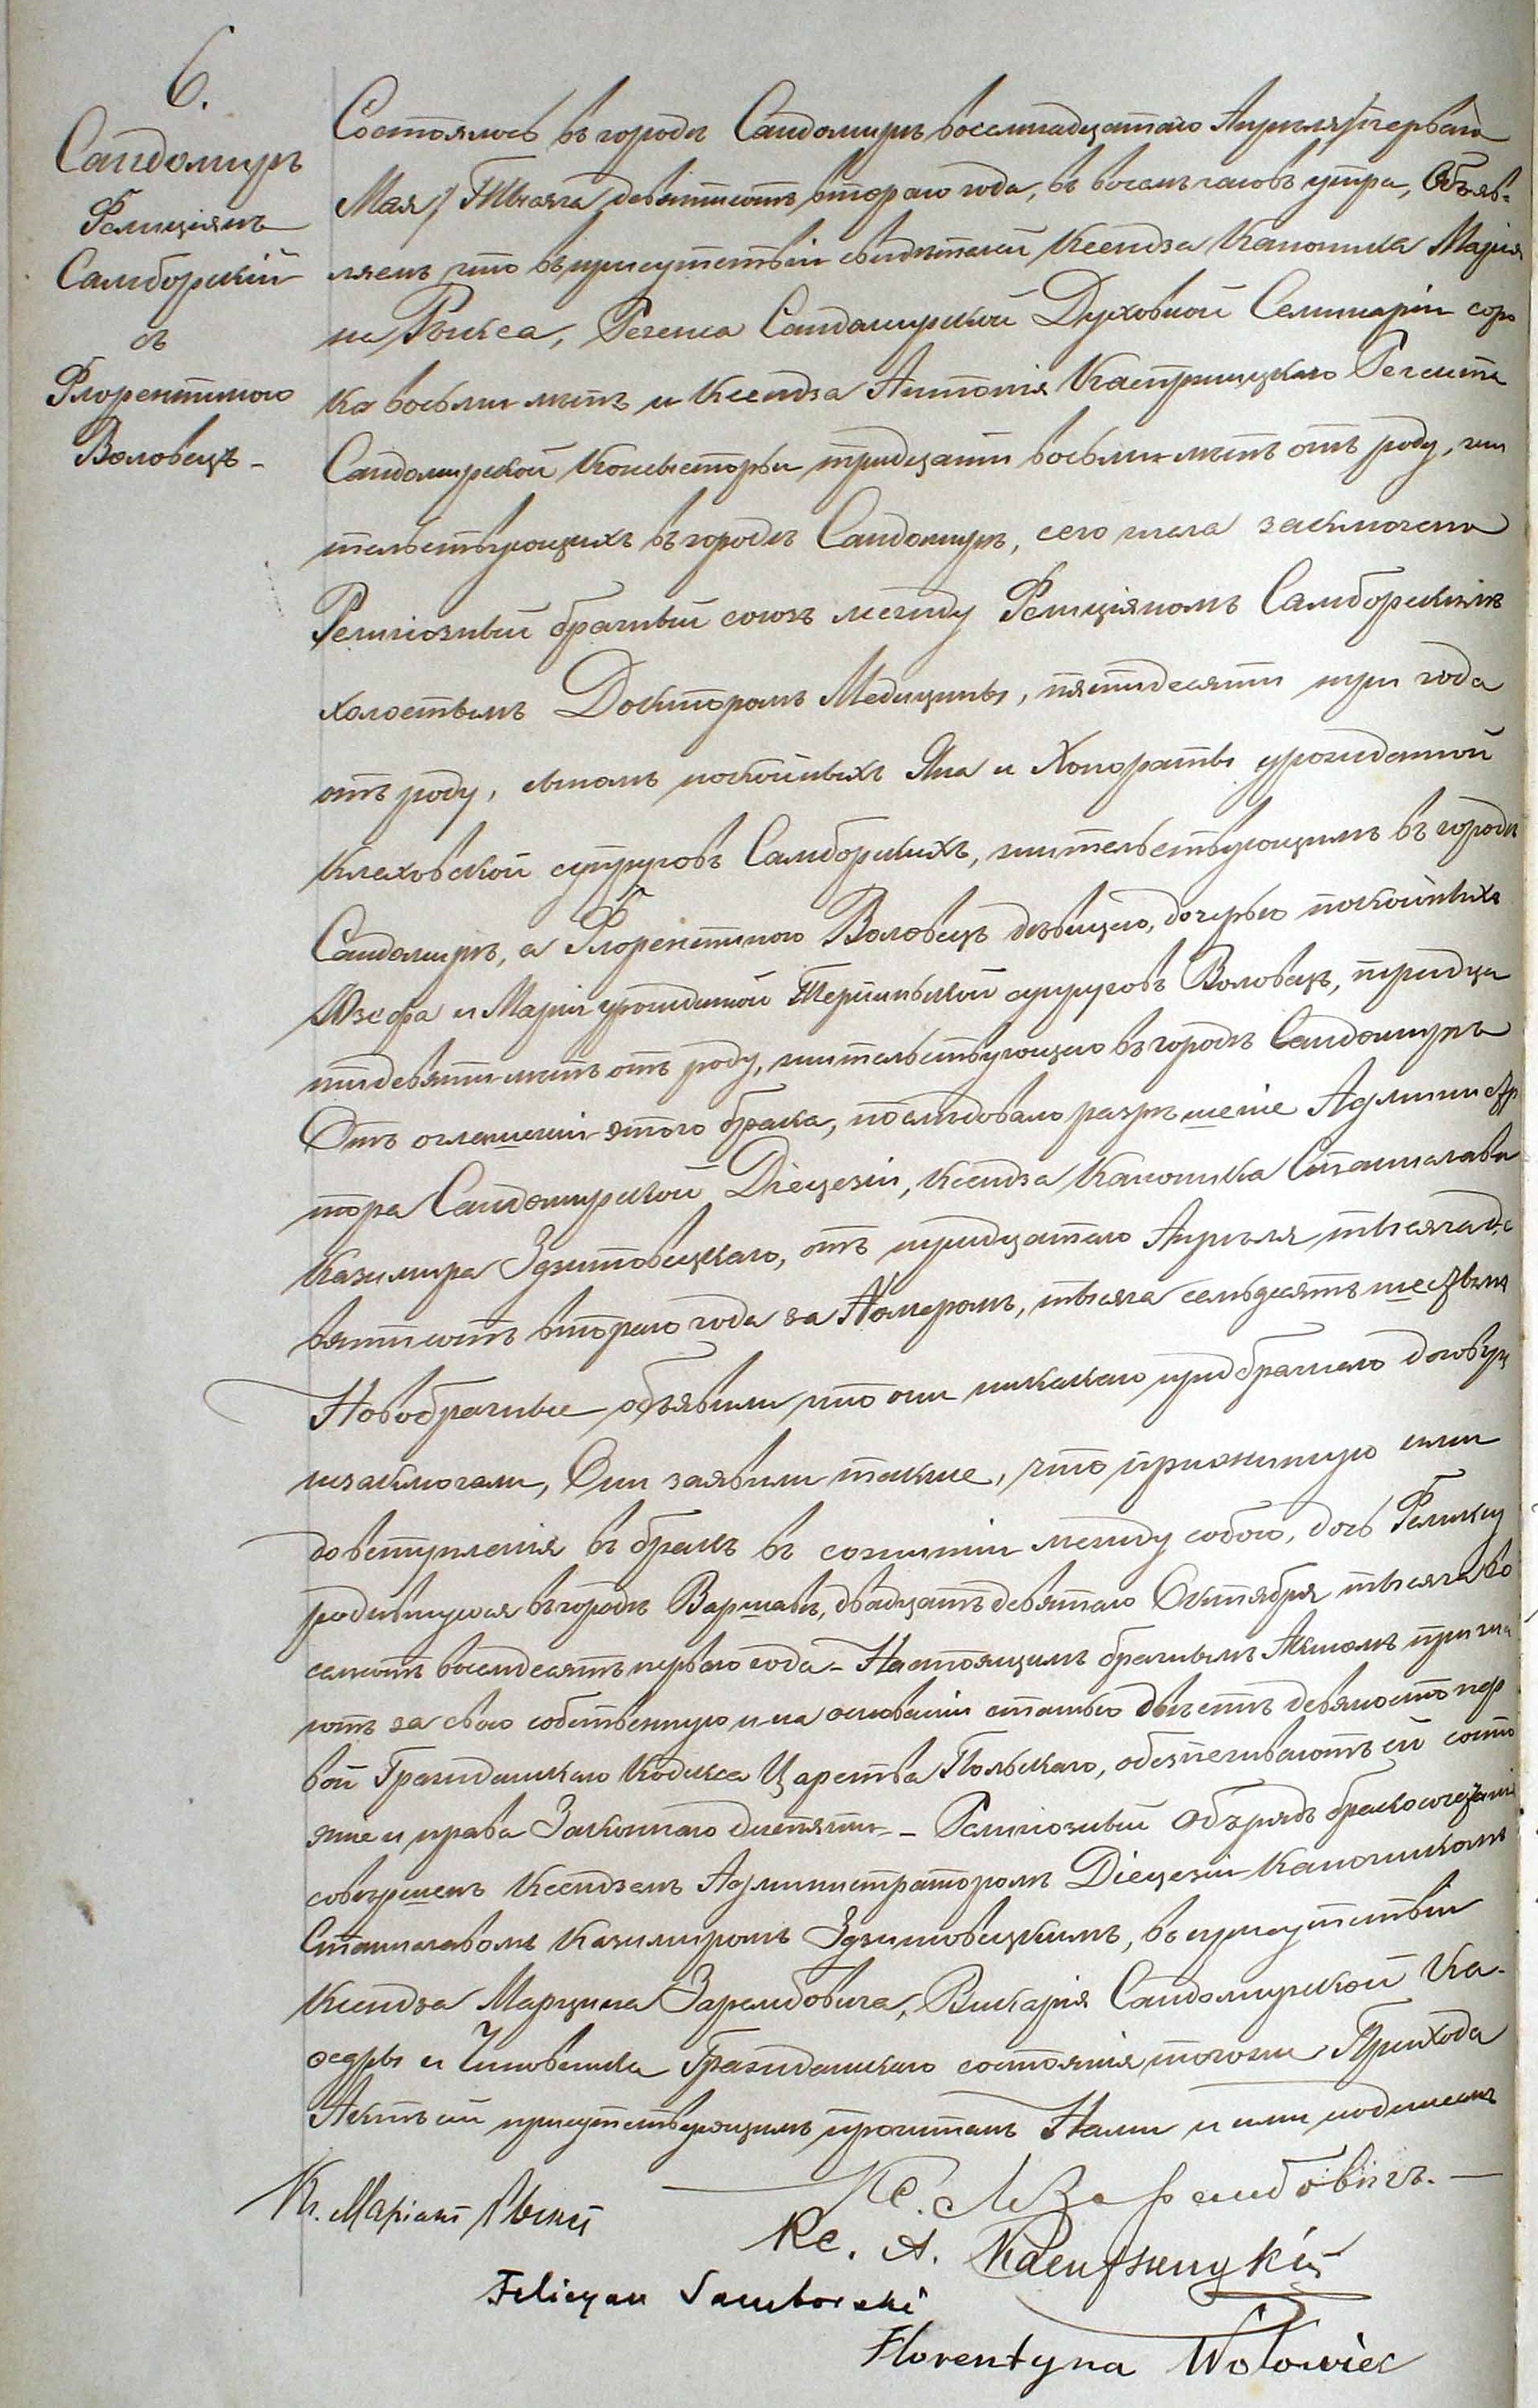 6.
Сандомиръ
Фелиціянъ
Самборскій
съ
Флорентиною
Воловецъ -
Состоялось въ городѣ Сандомирѣ восемнадцатаго Апрѣля /перваго
Мая/ Тысяча девятьсотъ втораго года, въ восемь часовъ утра, Объяв-
ляемъ что въ присутствіи свидѣтелей Ксендза Каноника Марія
на Рыкса, Регенса Сандомирской Духовной Семинаріи соро
ка восьми лѣтъ и Ксендза Антонія Каспржицкаго Регента
Сандомирской Консисторіи тридцати восьми лѣтъ отъ роду, жи
тельствующихъ въ городѣ Сандомирѣ, сего числа заключенъ
Религіозный брачный союзъ между Фелиціяномъ Самборскимъ
холостымъ Докторомъ Медицины, пятидесяти три года
отъ роду, сыномъ покойныхъ Яна и Хонораты урожденной
Клеховской супруговъ Самборскихъ, жительствующимъ въ городѣ
Сандомирѣ, а Флорентиною Воловецъ дѣвицею, дочерью покойныхъ
Юзефа и Маріи урожденной супруговъ Воловецъ, тридца
ти девяти лѣтъ отъ роду, жительствующею въ городѣ Сандомирѣ
Отъ оглашеній этого брака, послѣдовало разрѣшеніе Администр
тора Сандомирской Діецезіи, Ксендза Каноника Станислава
Казимира Здзитовецкаго, отъ тридцатаго Апрѣля тысяча де
вятьсотъ втораго года за Номеромъ, тысяча семьдесятъ шестымъ
Новобрачные объявили что они никакаго предбрачнаго договора
незаключали, Они заявили также, что прижитую ими
до вступленія въ бракъ въ сожитіи между собою, дочь Феликсу
родившуюся въ городѣ Варшавѣ, двадцать девятаго Октября тысяча во
семьсотъ восемдесятъ перваго года - Настоящимъ брачнымъ Актомъ призна
ютъ за свою собственную и на основаніи статьи двѣстѣ девяносто пер
вой Гражданскаго Кодекса Царства Польскаго, обезпечиваютъ ей состо
яніе и права Законнаго дитяти - Религіозный Обърядъ бракосочетанія
совершенъ Ксендземъ Администраторомъ Діецезіи Каноникомъ
Станиславомъ Казимиромъ Здзитовецкимъ, въ присутствіи
Ксендза Марцина Зарембовича, Викарія Сандомирской Ка-
ѳедры и Чиновника Гражданскаго состоянія тогоже Прихода
Актъ сей присутствующимъ прочитанъ Нами и ими подписанъ
Кс. М Зарембовичъ. -
Кс. Маріанъ Рыксъ
Кс. А.
Felicyan Samborski
Florentyna Wołowiec